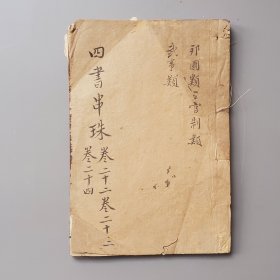 邦國類 官制類
武事類
四書串珠 卷二十二 卷二十三
卷二十四